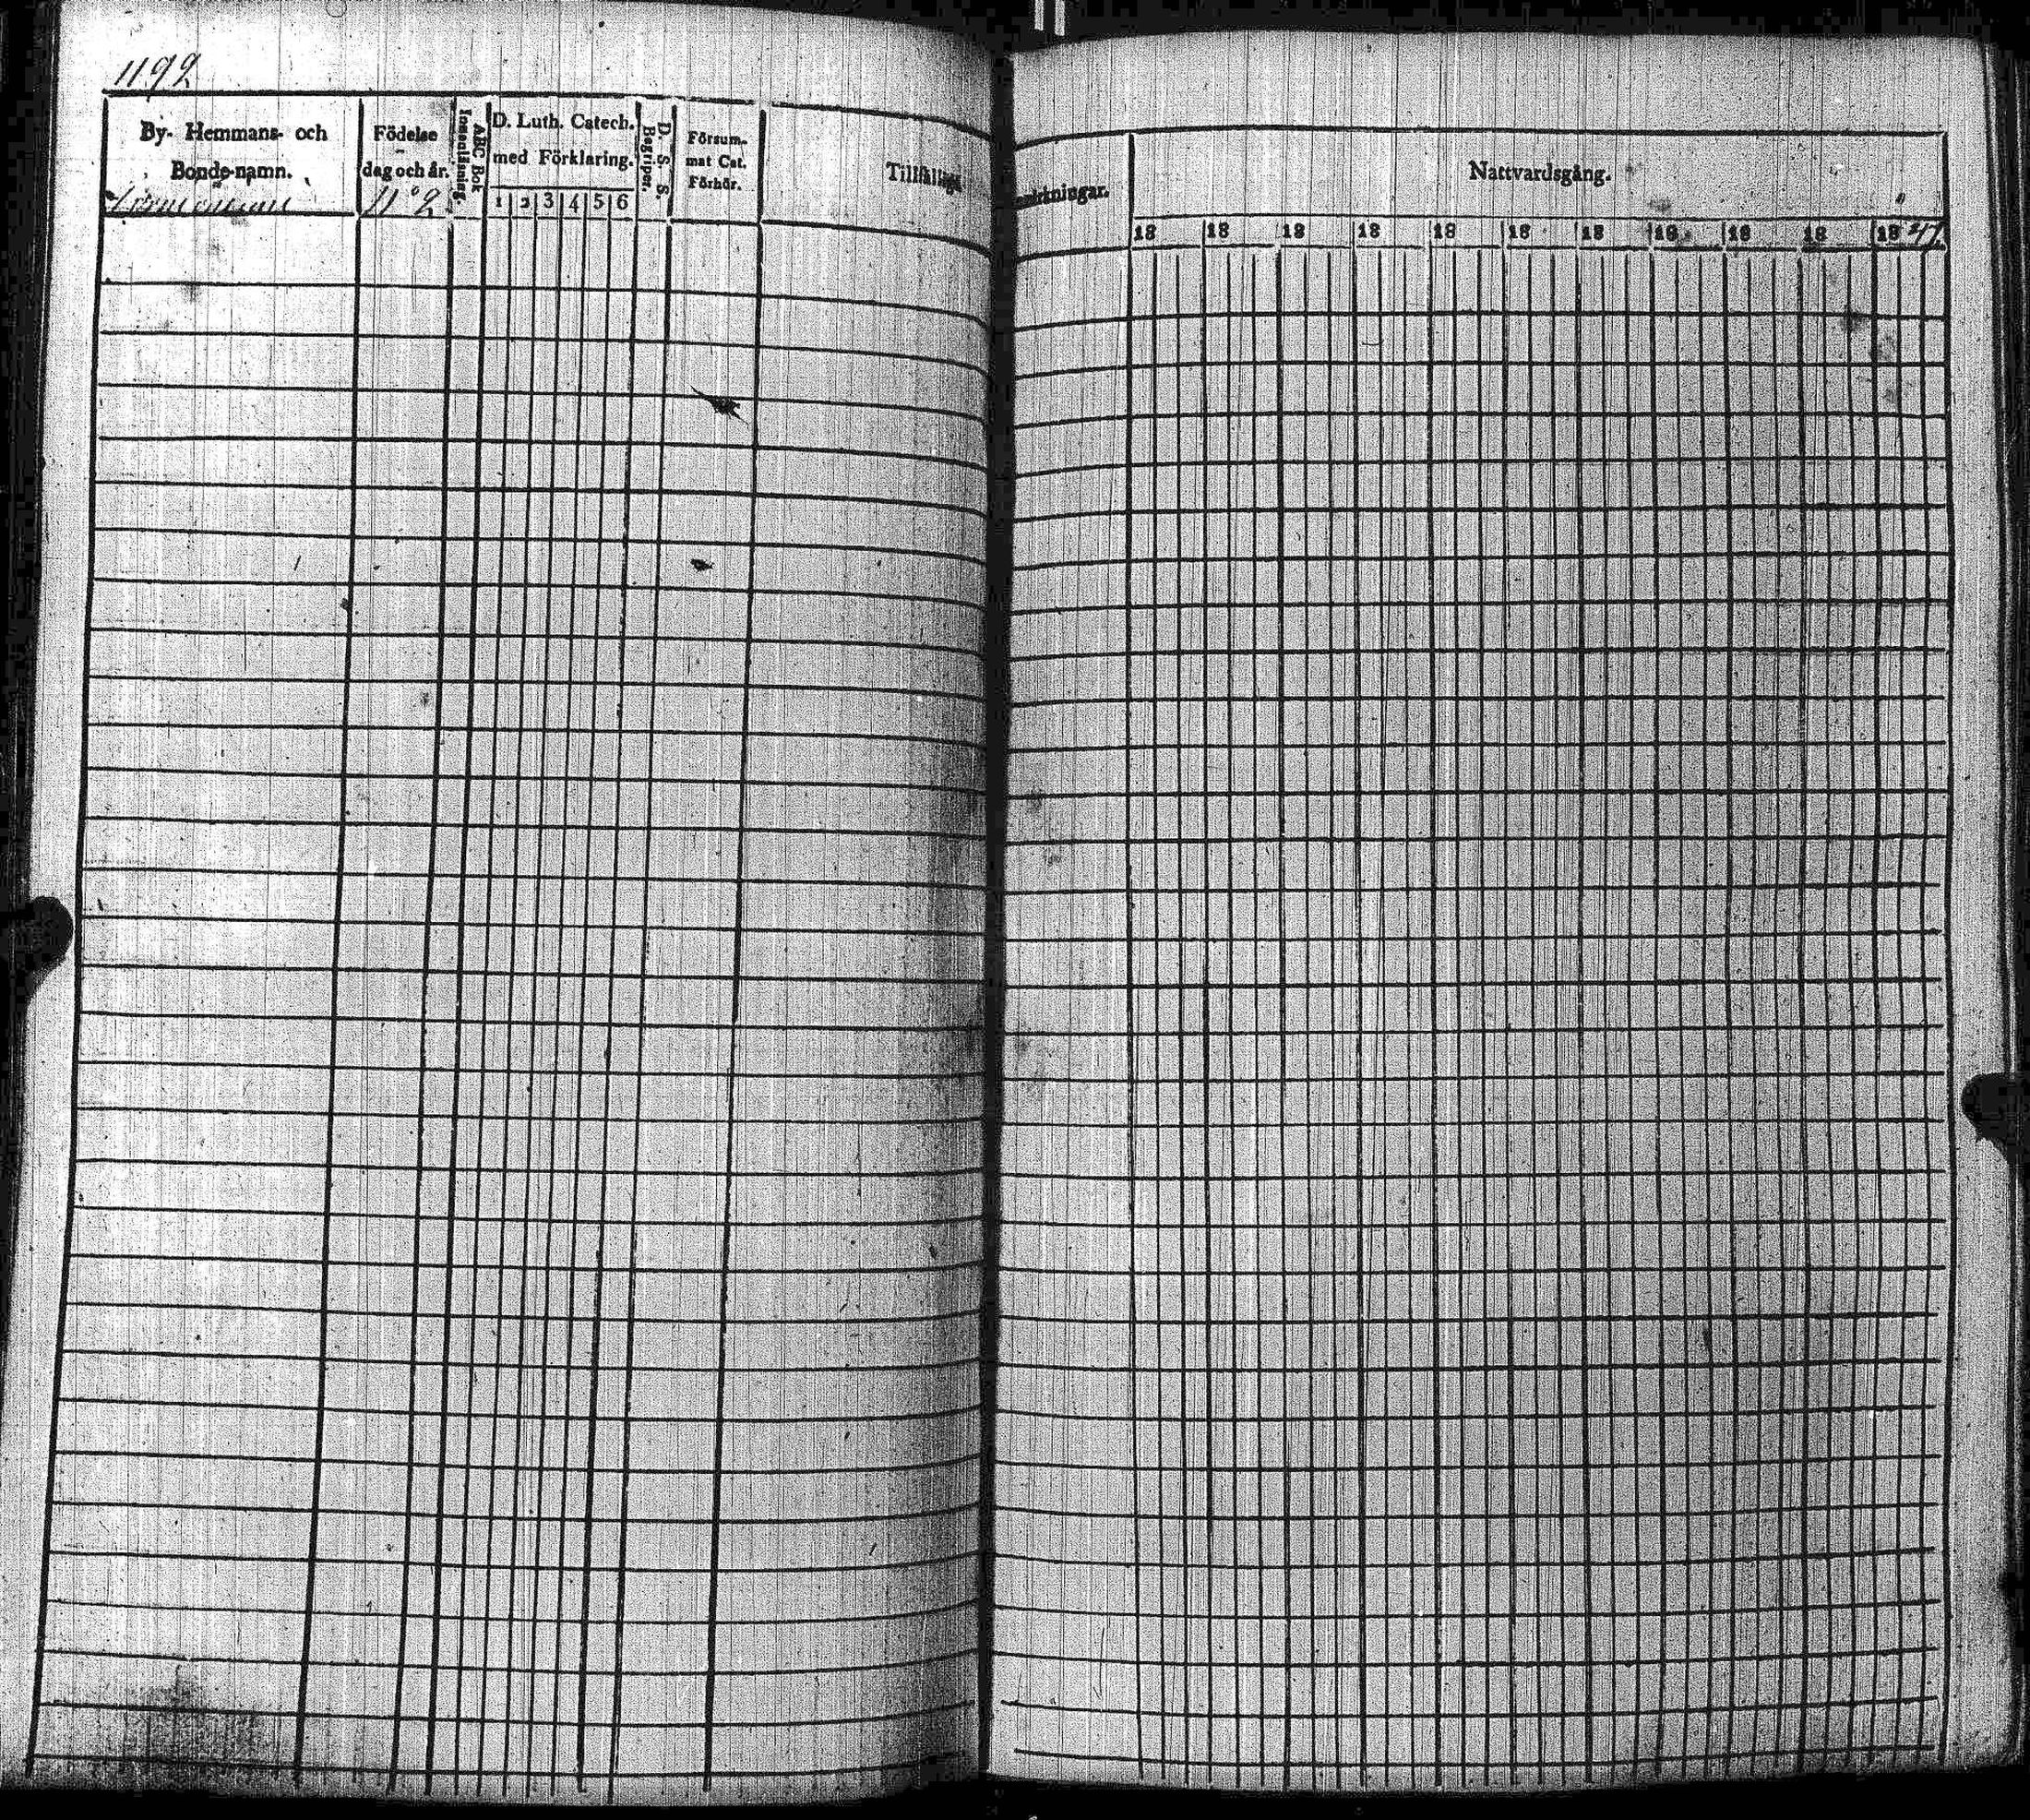 1192
By- Hemmans- och
Bonde-namn.
Födelse
dag och år.
N:o 2
ABC Bok
Innanläsning.
D. Luth. Catech.
med Förklaring.
1 2 3 4 5 6
D. S. S.
Begriper.
Försum-
mat Cat.
Förhör.
Nattvardsgång.
18 18 18 18 18 18 18 18 18 18 1841